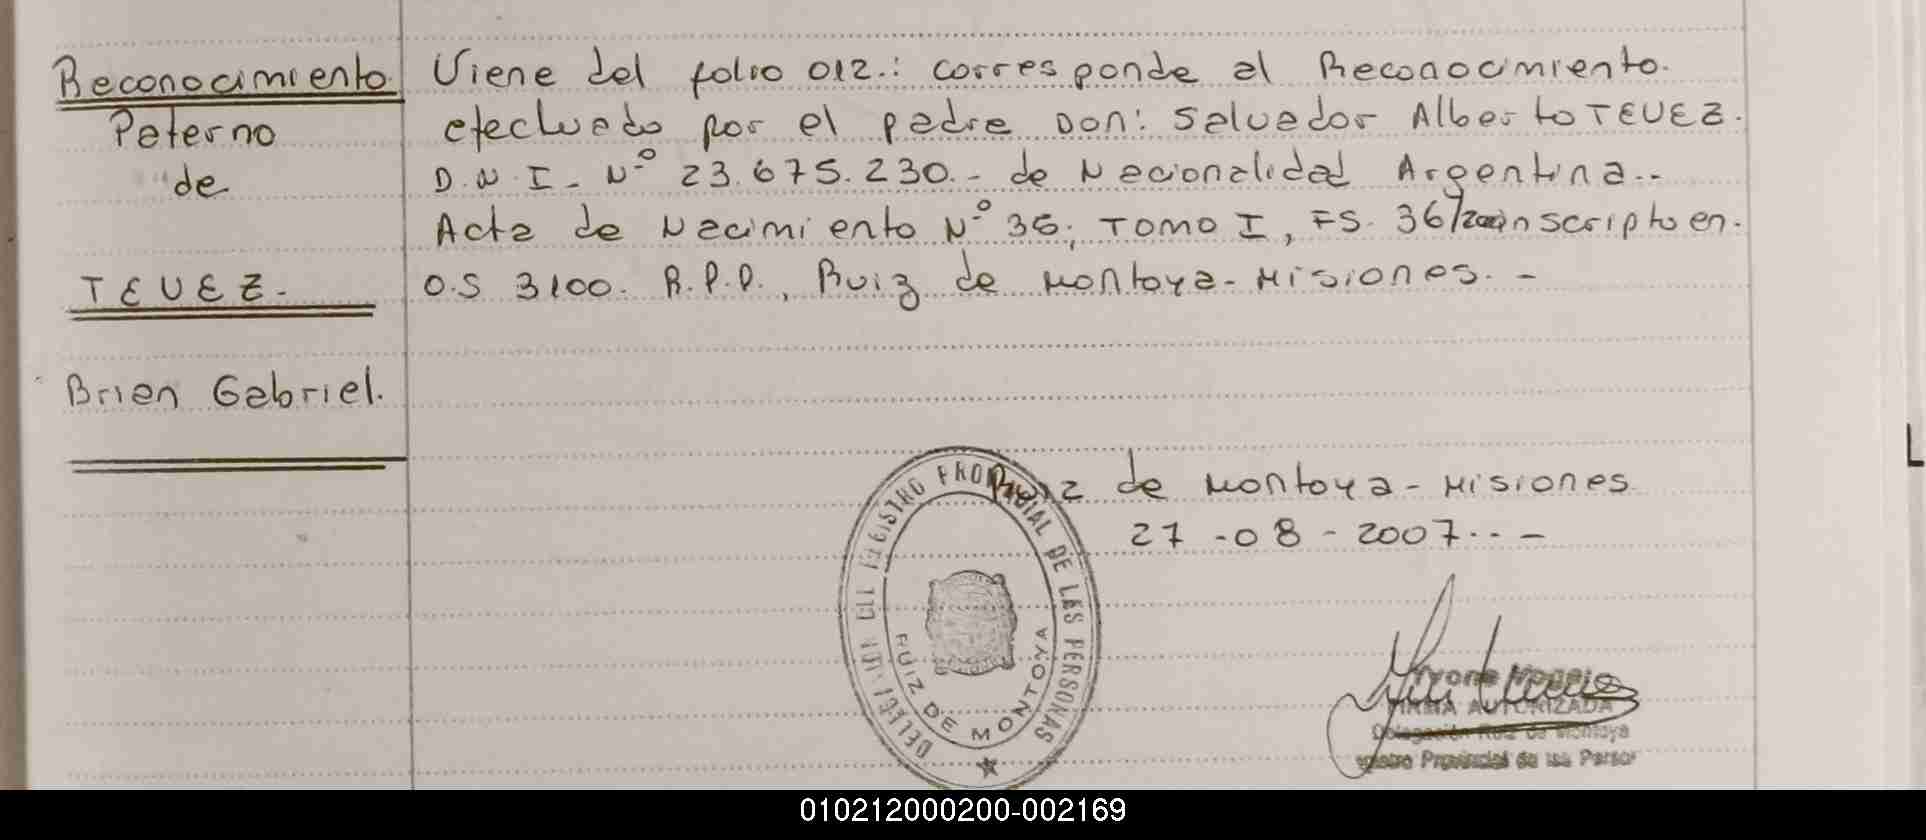 Reconocimiento
Paterno
de
TEVEZ.-
Brian Gabriel.
Viene del folio 012.: corresponde al Reconocimiento.
efectuado por el padre Don: Salvador Alberto TEVEZ.
D.N.I. Nº 23.675.230.- de Nacionalidad Argentina..-
Acta de Nacimiento Nº 36; TOMO I, FS. 36/2000 inscripto en.
O.S 3100. R.P.P., Ruiz de Montoya-Misiones. -
Ruiz de Montoya - Misiones
27 -08 - 2007...-
REGISTRO PROVINCIAL DE LAS PERSONAS
RUIZ DE MONTOYA
FIRMA AUTORIZADA
Delegación Ruiz de Montoya
Provincial de las Person
010212000200-002169